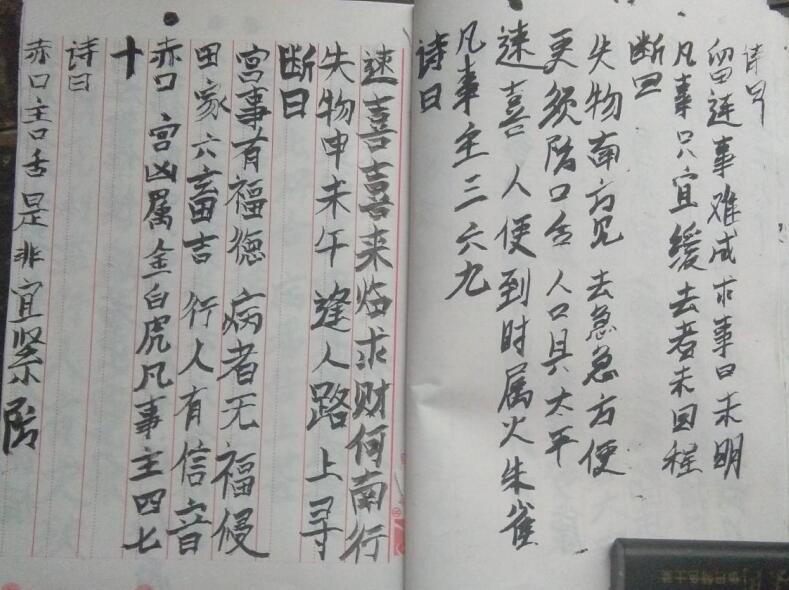 诗曰
留连事难成 求事日未明
凡事只宜缓 去者未回程
断曰
失物南方见 去急急方便
更须防口舌 人口具太平
速喜 人便到时属火朱雀
凡事主三六九
诗曰
速喜喜来临求财何南行
失物申未午 逢人路上寻
断曰
宫事有福德 病者无福侵
田家六畜吉 行人有信音
赤口 宫凶属金白虎凡事主四七
十
诗曰
赤口主口舌是非宜紧防